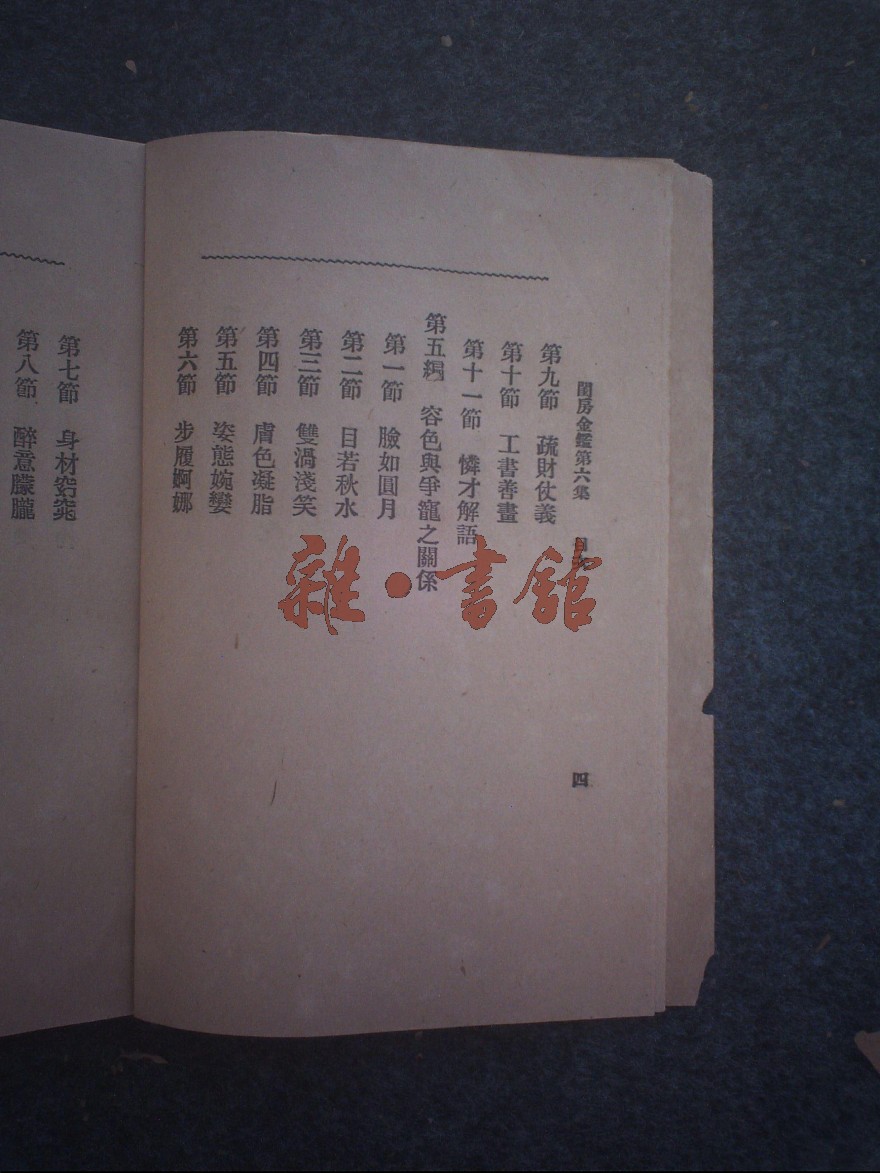 閨房金鑑第六集 目次 四
第九節 疏財仗義
第十節 工書善畫
第十一節 憐才解語
第五編 容色與爭寵之關係
第一節 臉如圓月
第二節 目若秋水
第三節 雙渦淺笑
第四節 膚色凝脂
第五節 姿態婉孌
第六節 步履婀娜
第七節 身材窈窕
第八節 醉意朦朧
雜·書館